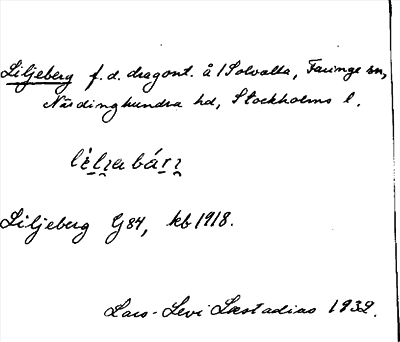 Liljeberg f.d. dragont. å 1 Solvalla, Faringe sn,
Närdinghundra hd, Stockholms l.
Liljeberg G84, kb 1918.
Lars-Levi Læstadius 1932.